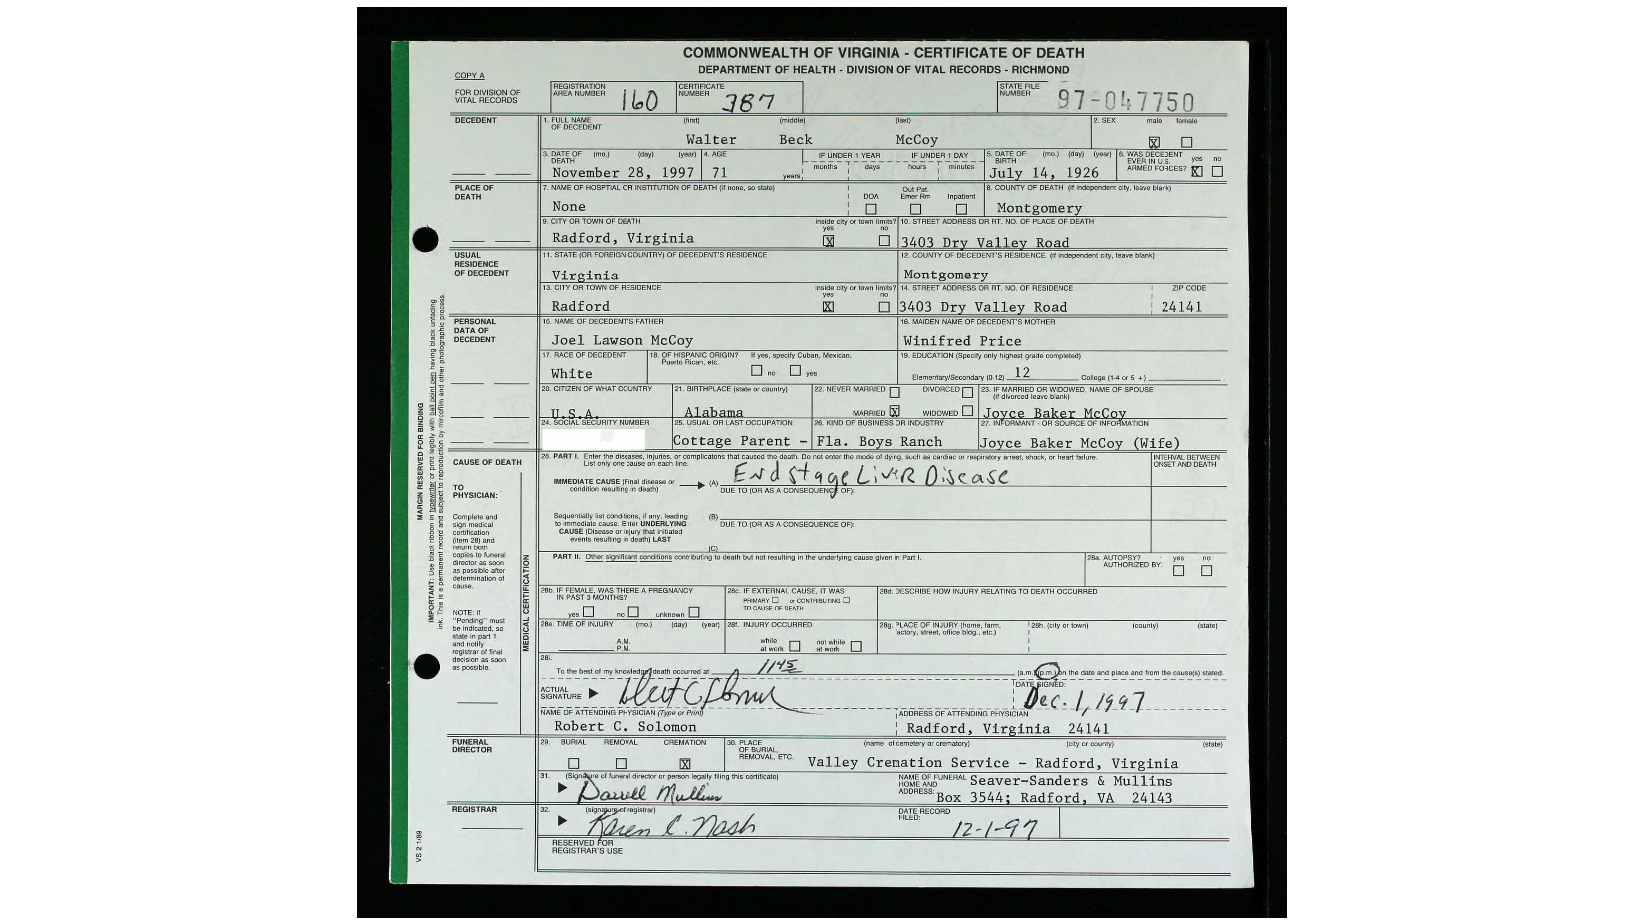 COMMONWEALTH OF VIRGINIA - CERTIFICATE OF DEATH
DEPARTMENT OF HEALTH - DIVISION OF VITAL RECORDS - RICHMOND
COPY A
FOR DIVISION OF VITAL RECORDS
REGISTRATION AREA NUMBER 160
CERTIFICATE NUMBER 387
STATE FILE NUMBER 97-047750
DECEDENT
1. FULL NAME OF DECEDENT (first) (middle) (last)
Walter Beck McCoy
2. SEX male female
X
3. DATE OF DEATH (mo.) (day) (year)
November 28, 1997
4. AGE
71 years
IF UNDER 1 YEAR months days
IF UNDER 1 DAY hours minutes
5. DATE OF BIRTH (mo.) (day) (year)
July 14, 1926
6. WAS DECEDENT EVER IN U.S. ARMED FORCES? yes no
X
PLACE OF DEATH
7. NAME OF HOSPTIAL OR INSTITUTION OF DEATH (if none, so state)
None
DOA Out Pat. Emer Rm Inpatient
8. COUNTY OF DEATH (if independent city, leave blank)
Montgomery
9. CITY OR TOWN OF DEATH
Radford, Virginia
inside city or town limits? yes no
X
10. STREET ADDRESS OR RT. NO. OF PLACE OF DEATH
3403 Dry Valley Road
USUAL RESIDENCE OF DECEDENT
11. STATE (OR FOREIGN COUNTRY) OF DECEDENT'S RESIDENCE
Virginia
12. COUNTY OF DECEDENT'S RESIDENCE (if independent city, leave blank)
Montgomery
13. CITY OR TOWN OF RESIDENCE
Radford
inside city or town limits? yes no
X
14. STREET ADDRESS OR RT. NO. OF RESIDENCE
3403 Dry Valley Road
ZIP CODE
24141
PERSONAL DATA OF DECEDENT
15. NAME OF DECEDENT'S FATHER
Joel Lawson McCoy
16. MAIDEN NAME OF DECEDENT'S MOTHER
Winifred Price
17. RACE OF DECEDENT
White
18. OF HISPANIC ORIGIN? If yes, specify Cuban, Mexican, Puerto Rican, etc.
no yes
19. EDUCATION (Specify only highest grade completed)
Elementary/Secondary (0-12) 12 College (1-4 or 5 +)
20. CITIZEN OF WHAT COUNTRY
U.S.A.
21. BIRTHPLACE (state or country)
Alabama
22. NEVER MARRIED DIVORCED
MARRIED X WIDOWED
23. IF MARRIED OR WIDOWED, NAME OF SPOUSE (if divorced leave blank)
Joyce Baker McCoy
24. SOCIAL SECURITY NUMBER
25. USUAL OR LAST OCCUPATION
Cottage Parent -
26. KIND OF BUSINESS OR INDUSTRY
Fla. Boys Ranch
27. INFORMANT - OR SOURCE OF INFORMATION
Joyce Baker McCoy (Wife)
CAUSE OF DEATH
TO PHYSICIAN:
Complete and sign medical certification (item 28) and return both copies to funeral director as soon as possible after determination of cause.
NOTE: if "Pending" must be indicated, so state in part 1 and notify registrar of final decision as soon as possible.
MEDICAL CERTIFICATION
28. PART I. Enter the diseases, injuries, or complicatons that caused the death. Do not enter the mode of dying, such as cardiac or respiratory arrest, shock, or heart failure.
List only one cause on each line.
INTERVAL BETWEEN ONSET AND DEATH
IMMEDIATE CAUSE (Final disease or condition resulting in death)
(A) End Stage LiveR Disease
DUE TO (OR AS A CONSEQUENCE OF):
Sequentially list conditions, if any, leading to immediate cause. Enter UNDERLYING CAUSE (Disease or injury that initiated events resulting in death) LAST
(B)
DUE TO (OR AS A CONSEQUENCE OF):
(C)
PART II. Other significant conditions contributing to death but not resulting in the underlying cause given in Part I.
28a. AUTOPSY? AUTHORIZED BY: yes no
28b. IF FEMALE, WAS THERE A PREGNANCY IN PAST 3 MONTHS?
yes no unknown
28c. IF EXTERNAL CAUSE, IT WAS
PRIMARY or CONTRIBUTING
TO CAUSE OF DEATH
28d. DESCRIBE HOW INJURY RELATING TO DEATH OCCURRED
28e. TIME OF INJURY (mo.) (day) (year)
A.N.
P.N.
28f. INJURY OCCURRED
while at work not while at work
28g. PLACE OF INJURY (home, farm, factory, street, office bldg., etc.)
28h. (city or town) (county) (state)
28i.
To the best of my knowledge death occurred at 1145 (a.m.) (p.m.) on the date and place and from the cause(s) stated.
ACTUAL SIGNATURE
DATE SIGNED:
Dec. 1, 1997
NAME OF ATTENDING PHYSICIAN (Type or Print)
Robert C. Solomon
ADDRESS OF ATTENDING PHYSICIAN
Radford, Virginia 24141
FUNERAL DIRECTOR
29. BURIAL REMOVAL CREMATION
X
30. PLACE OF BURIAL, REMOVAL, ETC. (name of cemetery or crematory) (city or county) (state)
Valley Crenation Service - Radford, Virginia
31. (Signature of funeral director or person legally filing this certificate)
Darrell Mullins
NAME OF FUNERAL HOME AND ADDRESS:
Seaver-Sanders & Mullins
Box 3544; Radford, VA 24143
REGISTRAR
32. (signature of registrar)
Karen C. Nash
DATE RECORD FILED:
12-1-97
RESERVED FOR REGISTRAR'S USE
MARGIN RESERVED FOR BINDING
IMPORTANT: Use black ribbon in typewriter or print legibly with ball point pen having black unfading
ink. This is a permanent record and subject to reproduction by mircofilm and other photographic process.
VS 2 1/89